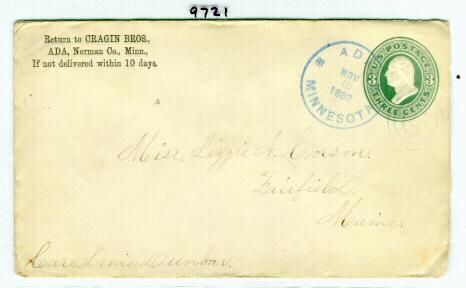 9721
Return to CRAGIN BROS.,
ADA, Norman Co., Minn.,
If not delivered within 10 days.
ADA
NOV
10
MINNESOTA
U.S. POSTAGE
THREE CENTS
Miss Lizzie A. Corson.
Fairfield.
Maine.
Care Lewis Dunbar.